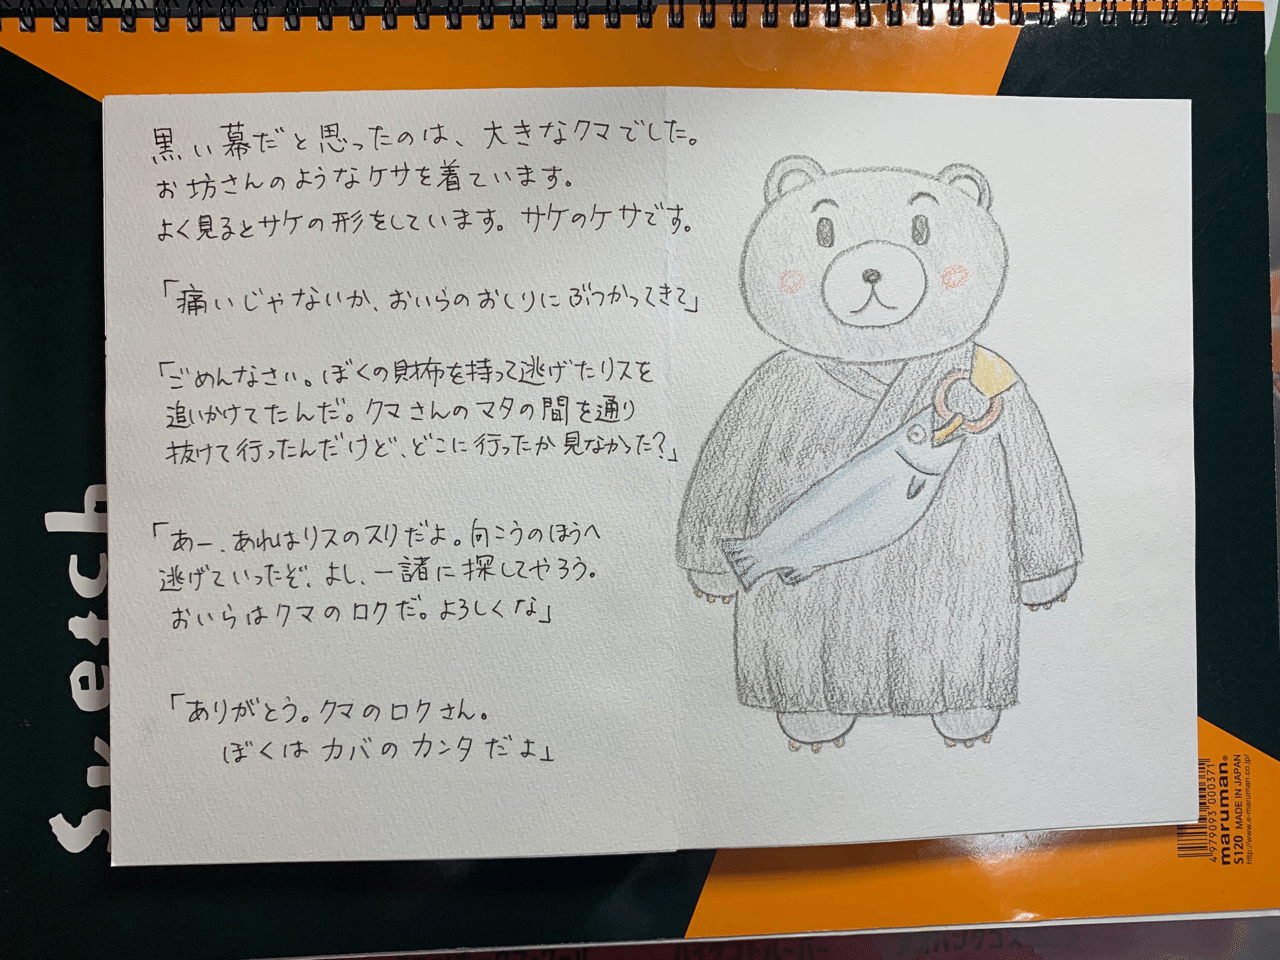 黒い幕だと思ったのは、大きなクマでした。
お坊さんのようなケサを着ています。
よく見るとサケの形をしています。サケのケサです。
「痛いじゃないか、おいらのおしりにぶつかってきて」
「ごめんなさい。ぼくの財布を持って逃げたリスを
追いかけてたんだ。クマさんのマタの間を通り
抜けて行ったんだけど、どこに行ったか見なかった?」
「あー、あれはリスのスリだよ。向こうのほうへ
逃げていったぞ、よし、一諸に探してやろう。
おいらはクマのロクだ。よろしくな」
「ありがとう。クマのロクさん。
ぼくはカバのカンタだよ」
Sketch
4979093 000371
maruman®
S120 MADE IN JAPAN
http://www.e-maruman.co.jp/